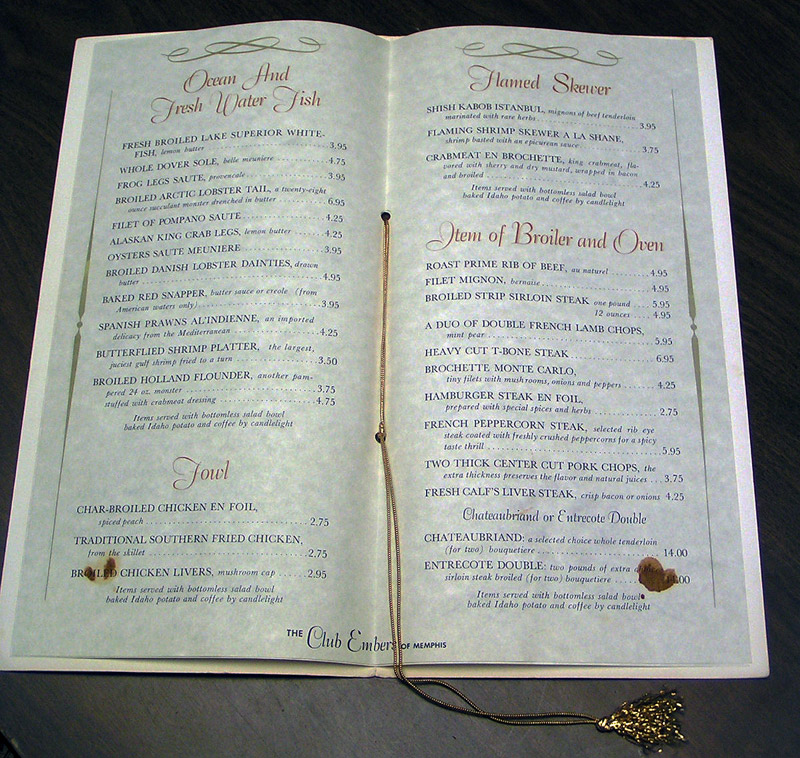 Ocean And
Fresh Water Fish
FRESH BROILED LAKE SUPERIOR WHITE-
FISH, lemon butter .......... 3.95
WHOLE DOVER SOLE, belle meuniere .......... 4.75
FROG LEGS SAUTE, provencale .......... 3.95
BROILED ARCTIC LOBSTER TAIL, a twenty-eight
ounce succulant monster drenched in butter .......... 6.95
FILET OF POMPANO SAUTE .......... 4.25
ALASKAN KING CRAB LEGS, lemon butter .......... 4.25
OYSTERS SAUTE MEUNIERE .......... 3.95
BROILED DANISH LOBSTER DAINTIES, drawn
butter .......... 4.95
BAKED RED SNAPPER, butter sauce or creole (from
American waters only) .......... 3.95
SPANISH PRAWNS AL'INDIENNE, an imported
delicacy from the Mediterranean .......... 4.25
BUTTERFLIED SHRIMP PLATTER, the largest,
juciest gulf shrimp fried to a turn .......... 3.50
BROILED HOLLAND FLOUNDER, another pam-
pered 24 oz. monster .......... 3.75
stuffed with crabmeat dressing .......... 4.75
Items served with bottomless salad bowl
baked Idaho potato and coffee by candlelight
Fowl
CHAR-BROILED CHICKEN EN FOIL,
spiced peach .......... 2.75
TRADITIONAL SOUTHERN FRIED CHICKEN,
from the skillet .......... 2.75
BROILED CHICKEN LIVERS, mushroom cap .......... 2.95
Items served with bottomless salad bowl
baked Idaho potato and coffee by candlelight
Flamed Skewer
SHISH KABOB ISTANBUL, mignons of beef tenderloin
marinated with rare herbs .......... 3.95
FLAMING SHRIMP SKEWER A LA SHANE,
shrimp basted with an epicurean sauce .......... 3.75
CRABMEAT EN BROCHETTE, king crabmeat, fla-
vored with sherry and dry mustard, wrapped in bacon
and broiled .......... 4.25
Items served with bottomless salad bowl
baked Idaho potato and coffee by candlelight
Item of Broiler and Oven
ROAST PRIME RIB OF BEEF, au naturel .......... 4.95
FILET MIGNON, bernaise .......... 4.95
BROILED STRIP SIRLOIN STEAK one pound .... 5.95
12 ounces .... 4.95
A DUO OF DOUBLE FRENCH LAMB CHOPS,
mint pear .......... 5.95
HEAVY CUT T-BONE STEAK .......... 6.95
BROCHETTE MONTE CARLO,
tiny filets with mushrooms, onions and peppers .... 4.25
HAMBURGER STEAK EN FOIL,
prepared with special spices and herbs .......... 2.75
FRENCH PEPPERCORN STEAK, selected rib eye
steak coated with freshly crushed peppercorns for a spicy
taste thrill .......... 5.95
TWO THICK CENTER CUT PORK CHOPS, the
extra thickness preserves the flavor and natural juices ... 3.75
FRESH CALF'S LIVER STEAK, crisp bacon or onions 4.25
Chateaubriand or Entrecote Double
CHATEAUBRIAND: a selected choice whole tenderloin
(for two) bouquetiere .......... 14.00
ENTRECOTE DOUBLE: two pounds of extra
sirloin steak broiled (for two) bouquetiere ..........
Items served with bottomless salad bowl
baked Idaho potato and coffee by candlelight
THE Club Embers OF MEMPHIS